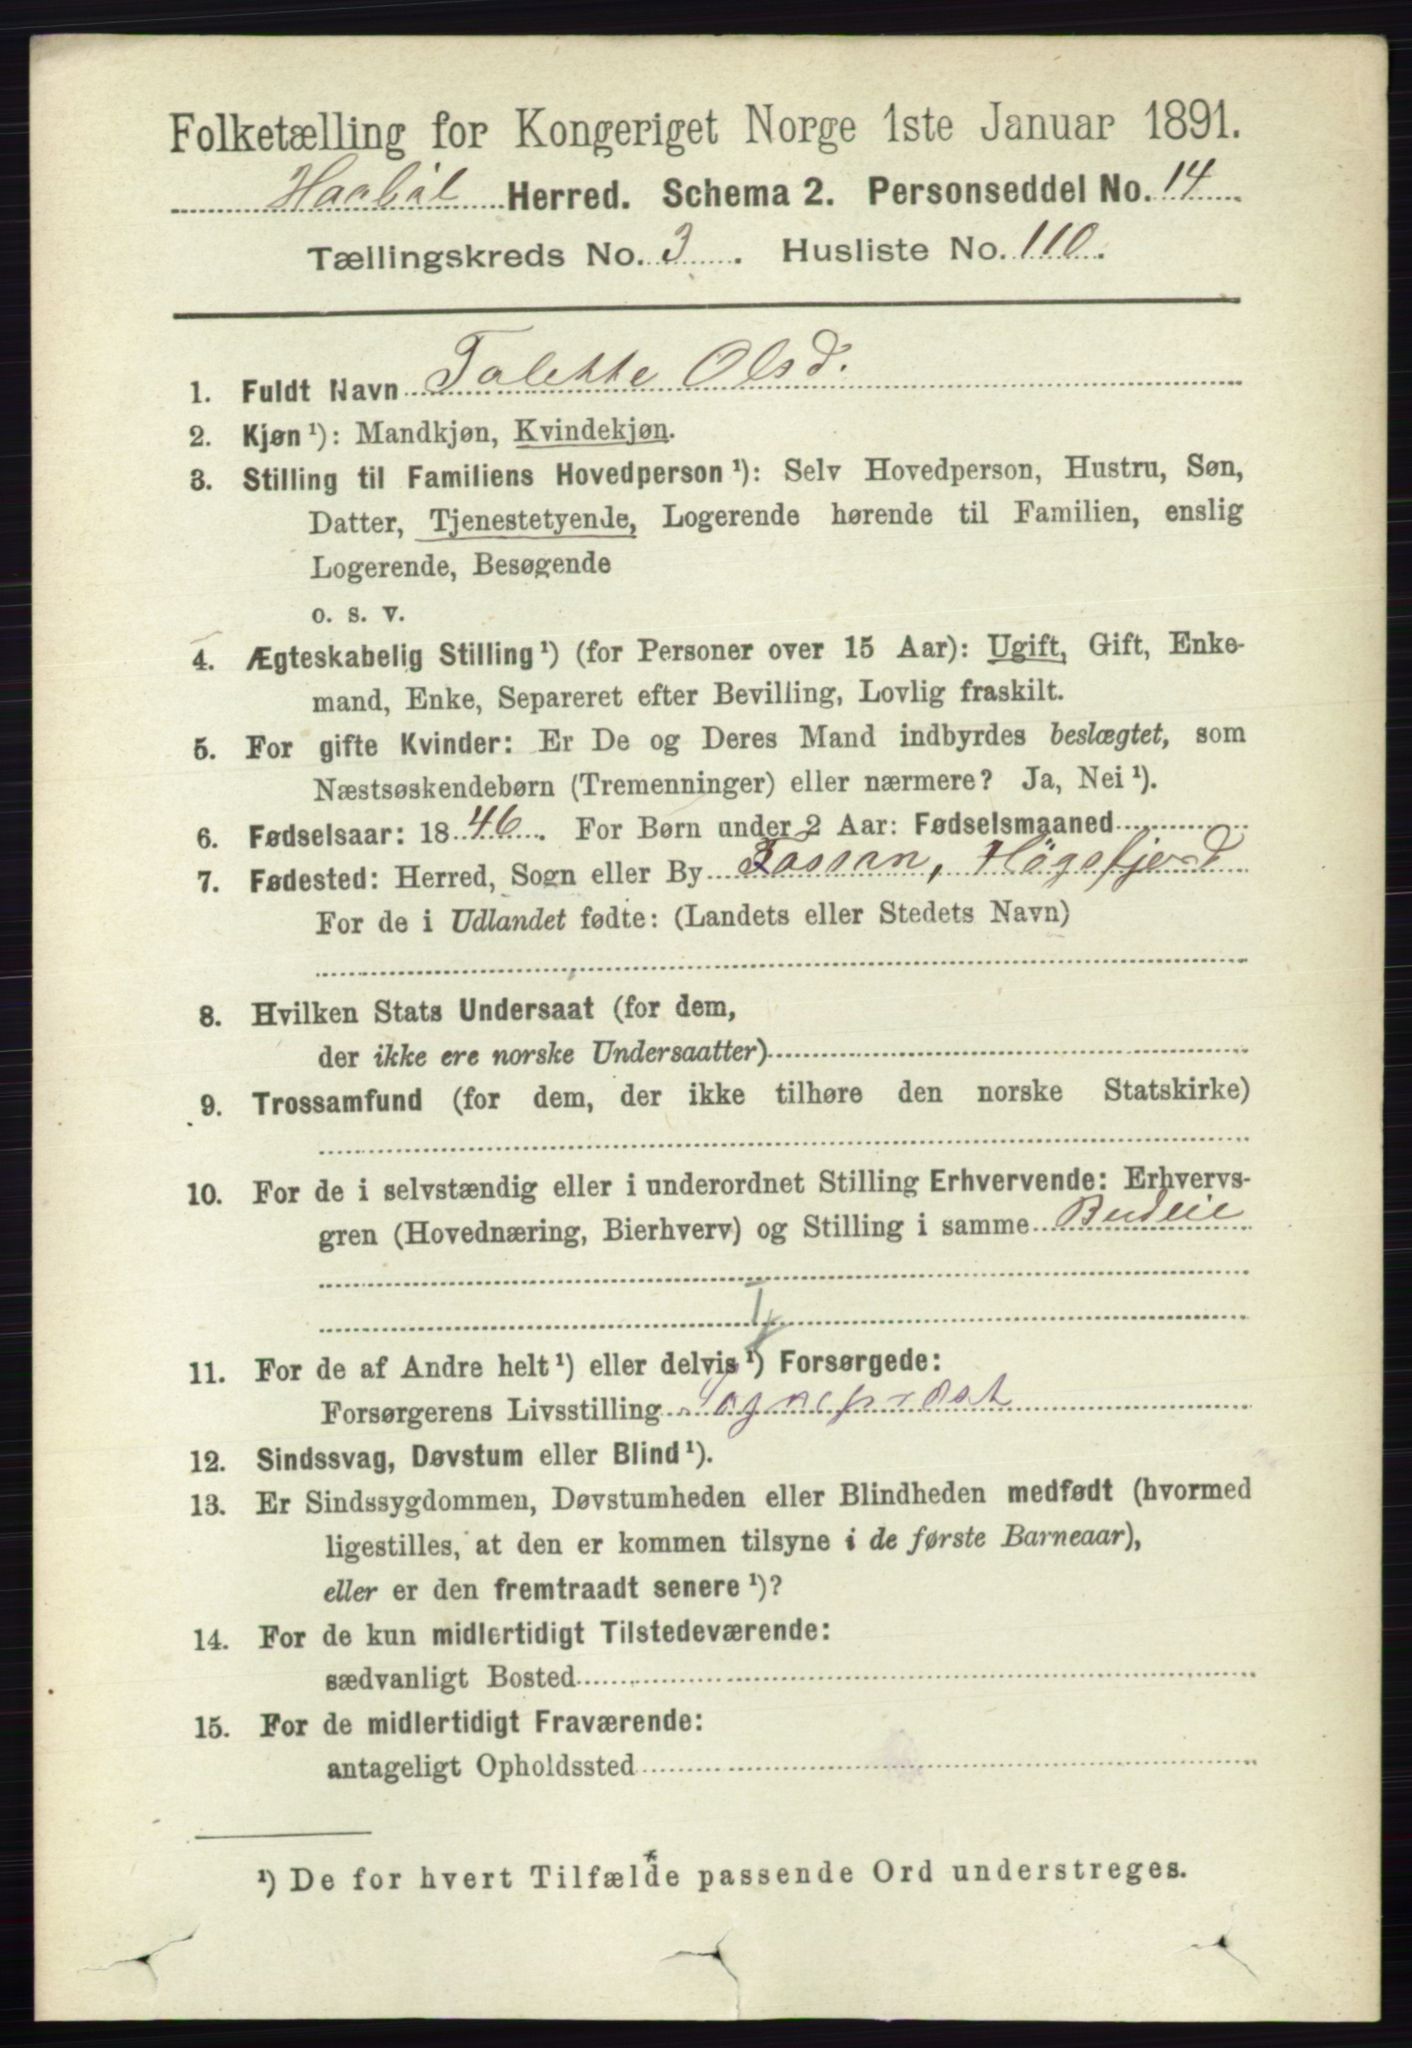 Folketælling for Kongeriget Norge 1ste Januar 1891.
Haabøl Herred. Schema 2. Personseddel No. 14
Tællingskreds No. 3. Husliste No. 110.
1. Fuldt Navn Talette Olsd.
2. Kjøn ¹): Mandkjøn, Kvindekjøn.
3. Stilling til Familiens Hovedperson ¹): Selv Hovedperson, Hustru, Søn,
Datter, Tjenestetyende, Logerende hørende til Familien, enslig
Logerende, Besøgende
o. s. v.
4. Ægteskabelig Stilling ¹) (for Personer over 15 Aar): Ugift, Gift, Enke-
mand, Enke, Separeret efter Bevilling, Lovlig fraskilt.
5. For gifte Kvinder: Er De og Deres Mand indbyrdes beslægtet, som
Næstsøskendebørn (Tremenninger) eller nærmere? Ja, Nei ¹).
6. Fødselsaar: 1846. For Børn under 2 Aar: Fødselsmaaned
7. Fødested: Herred, Sogn eller By Fossan, Högsfjord
For de i Udlandet fødte: (Landets eller Stedets Navn)
8. Hvilken Stats Undersaat (for dem,
der ikke ere norske Undersaatter)
9. Trossamfund (for dem, der ikke tilhøre den norske Statskirke)
10. For de i selvstændig eller i underordnet Stilling Erhvervende: Erhvervs-
gren (Hovednæring, Bierhverv) og Stilling i samme Budeie
11. For de af Andre helt ¹) eller delvis ¹) Forsørgede:
Forsørgerens Livsstilling Sogneprest
12. Sindssvag, Døvstum eller Blind ¹).
13. Er Sindssygdommen, Døvstumheden eller Blindheden medfødt (hvormed
ligestilles, at den er kommen tilsyne i de første Barneaar),
eller er den fremtraadt senere ¹)?
14. For de kun midlertidigt Tilstedeværende:
sædvanligt Bosted
15. For de midlertidigt Fraværende:
antageligt Opholdssted
¹) De for hvert Tilfælde passende Ord understreges.